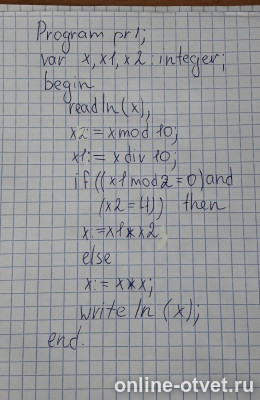 Program pr1;
var x, x1, x2 : integer;
begin
readln(x),
x2:= x mod 10;
x1:= x div 10;
if ((x1 mod 2 = 0) and
(x2 = 4)) then
x:=x1*x2
else
x:= x*x;
writeln (x);
end.
online-otvet.ru